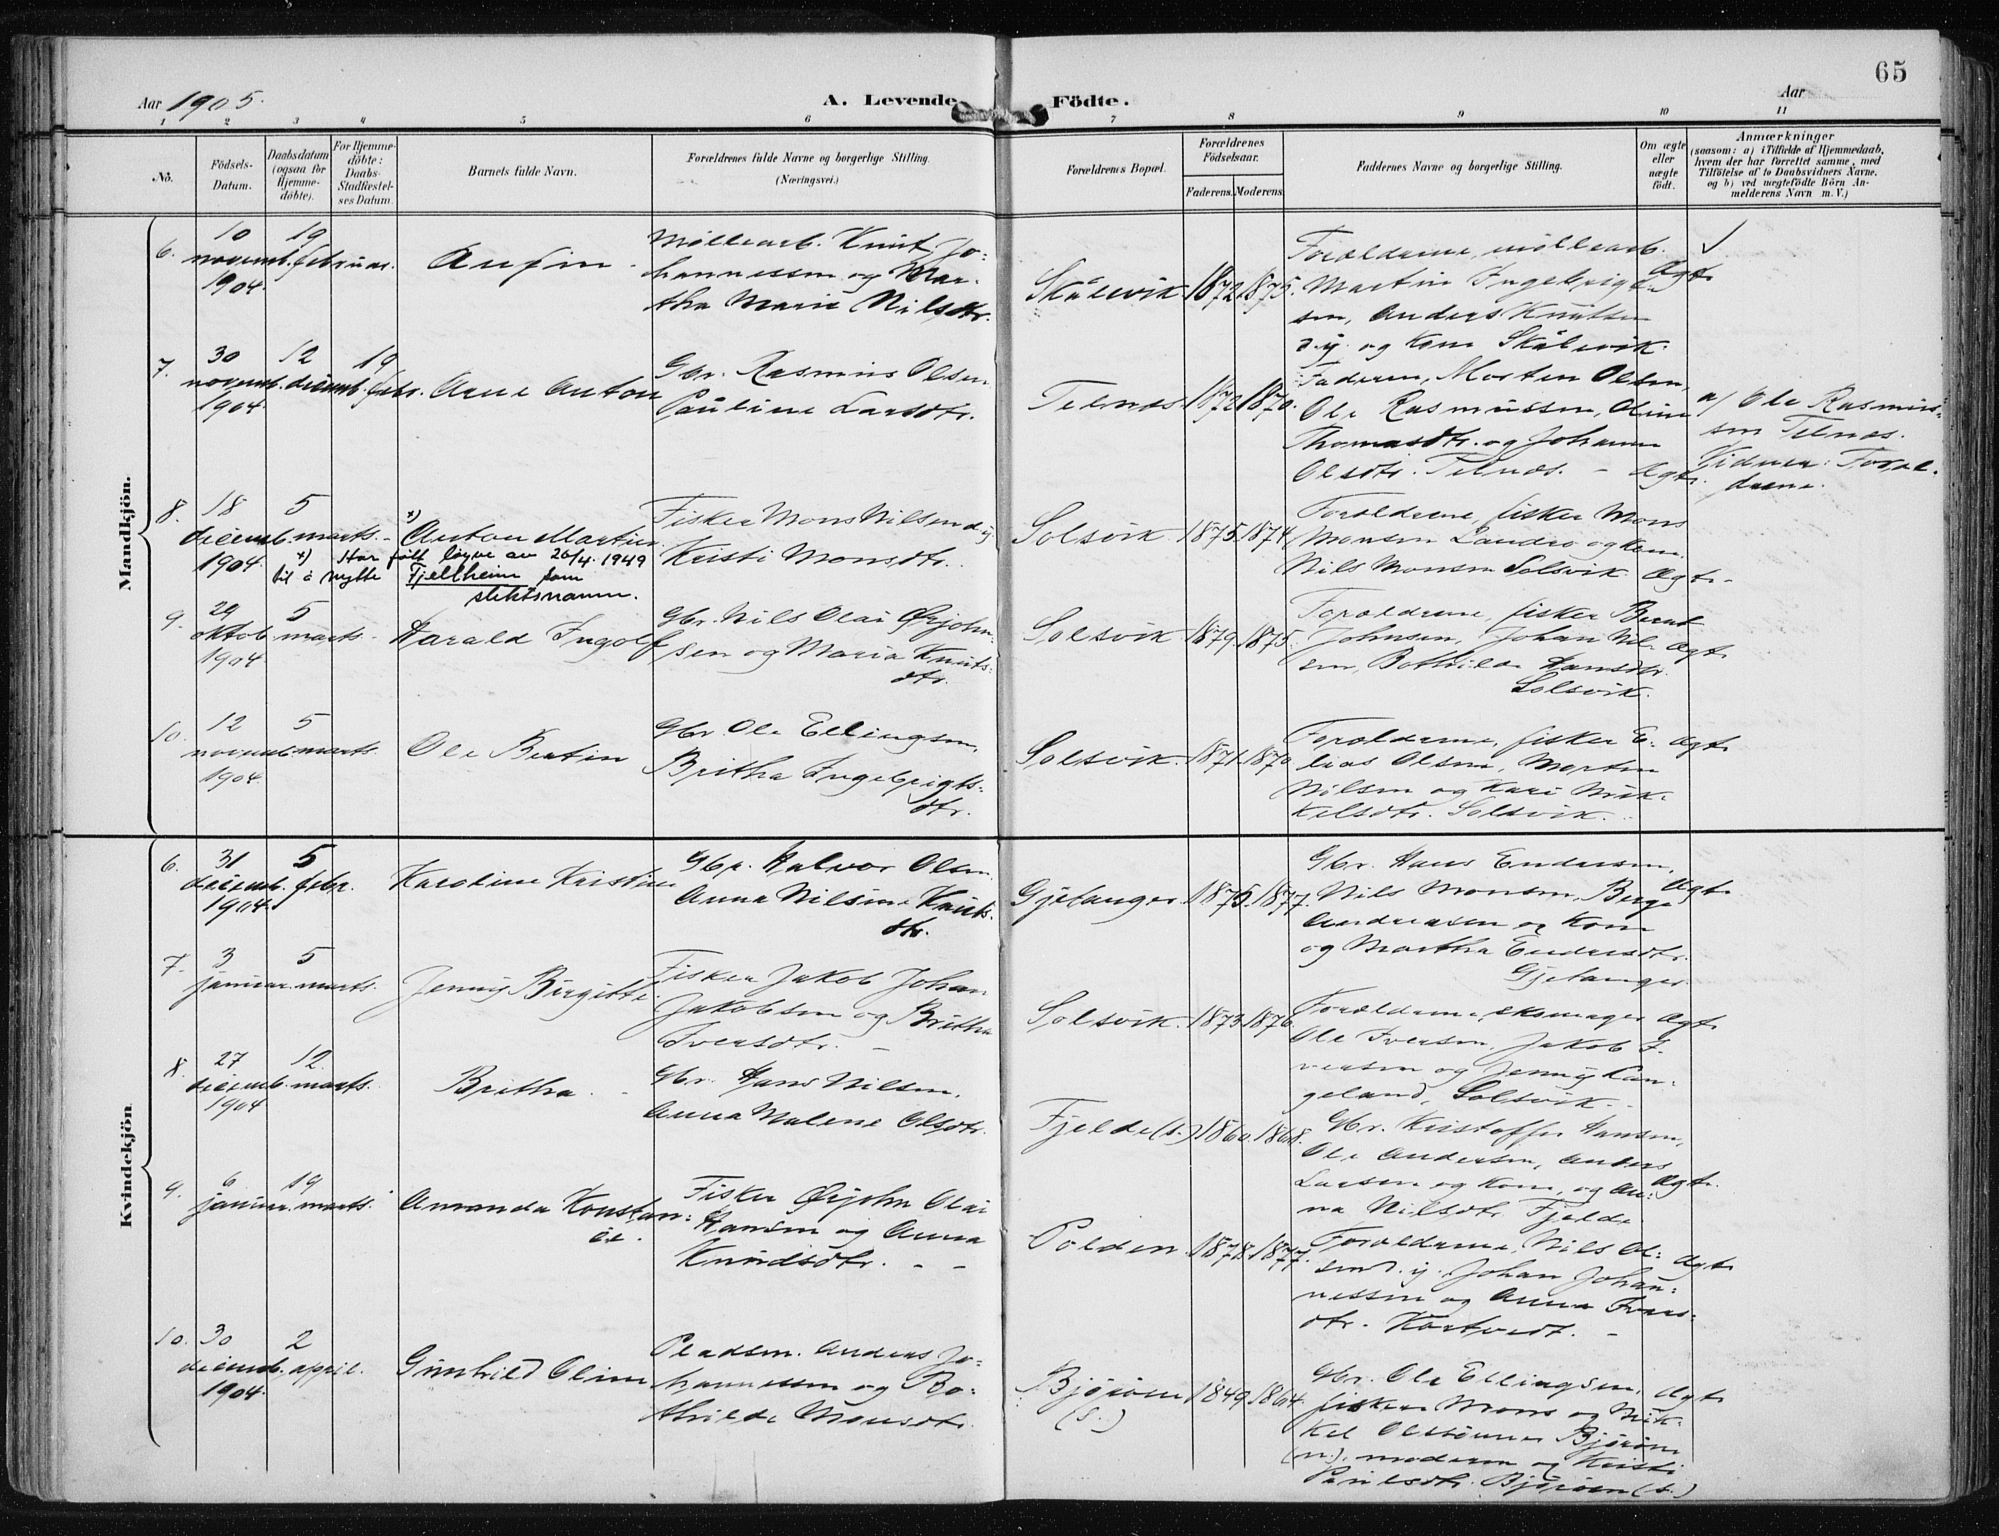 65
Aar 1905.
A. Levende Födte.
Aar
1 2 3 4 5 6 7 8 9 10 11
Nö.
Födsels-Datum.
Daabsdatum (ogsaa for Hjemmedöbte).
For Hjemmedöbte: Daabs-Stadfæstelses Datum.
Barnets fulde Navn.
Forældrenes fulde Navne og borgerlige Stilling.
(Næringsvei.)
Forældrenes Bopæl.
Forældrenes Födselsaar.
Faderens. Moderens.
Faddernes Navne og borgerlige Stilling.
Om ægte eller uægte födt.
Anmærkninger
(saasom: a) i Tilfælde af Hjemmedaab,
hvem der har forrettet samme, med
Tilföielse af to Daabsvidners Navne,
og b) ved uægtefödte Börn Anmelderens Navn m. V.)
Mandkjön.
6. 10 novemb. 1904. 19 februar.
Møllearb. Knut Jo-
hannessen og Mar-
tha Marie Nilsdtr.
Skålevik 1872 1875.
Forældrene, møllearb.
Martin Ingebrigt-
sen, Anders Knutsen
d.y. og kone Skålevik.
Ægte
7. 30 novemb. 1904. 12 decemb. 19 febr. Arne Anton
Gbr. Rasmus Olsen
Pauline Larsdtr.
Telnæs 1872 1870.
Faderen, Morten Olsen,
Ole Rasmussen, Oline
Thomasdtr. og Johanne
Olsdtr. Telnæs. - Ægte
a/ Ole Rasmus-
sen Telnæs.
Vidner: Foræl-
drene.
8. 18 decemb. 1904 5 marts. x) Anton Martin
Fisker Mons Nilsen d.y.
Kristi Monsdtr.
x) Har fått løyve av 26/4.1949
til å nytte Fjellheim som
slektsnamn.
Solsvik 1875. 1874.
Forældrene, fisker Mons
Monsen Landro og kone
Nils Monsen Solsvik. Ægte
9. 29 oktob. 1904. 5 marts. Harald Ingolf
Gbr. Nils Olai Ørjohn-
sen og Maria Knuts-
dtr.
Solsvik 1879. 1875.
Forældrene, fisker Bernt
Johnsen, Johan Nil-
sen, Bothilde Hansdtr.
Solsvik.
Ægte
10. 12 novemb. 1904. 5 marts. Ole Bertin
Gbr. Ole Ellingsen,
Britha Ingebrigts-
dtr.
Solsvik. 1871. 1870.
Forældrene, fisker E-
lias Olsen, Morten
Nilsen og Kari Mik-
kelsdtr. Solsvik.
Ægte
Kvindekjön.
6. 31 decemb. 1904. 5 febr. Karoline Kristine
Gbr. Halvor Olsen
Anna Nilsine Knuts-
dtr.
Gjetanger 1875. 1877.
Gbr. Hans Endersen,
Nils Monsen, Berge
Andreasen og kone
og Martha Endersdtr.
Gjetanger
Ægte
7. 3 januar. 5 marts. Jenny Birgitte
Fisker Jakob Johan
Jakobsen og Britha
Iversdtr. -
Solsvik. 1873. 1876.
Forældrene, skomager
Ole Iversen, Jakob I-
versen og Jenny Lan-
geland, Solsvik.
Ægte
8. 27 decemb. 1904 12 marts. Britha
Gbr. Hans Nilsen,
Anna Malene Olsdtr.
Fjelde (s.) 1860. 1868.
Gbr. Kristoffer Hansen,
Ole Andersen, Anders
Larsen og kone, og An-
na Nilsdtr. Fjelde
Ægte.
9. 6 januar. 19 marts. Amanda Konstan-
ce.
Fisker Ørjohn Olai
Hansen og Anna
Knudsdtr. - -
Polden. 1878. 1877.
Forældrene, Nils Ol-
sen d.y. Johan Johan-
nessen og Anna Ivers-
dtr. Kårtvedt. -
Ægte
10. 30 decemb. 1904. 2 april. Gunhild Oline
Pladsm. Anders Jo-
hannessen og Bo-
thilde Monsdtr.
Bjørøen (s.) 1849. 1864.
Gbr. Ole Ellingsen,
fisker Mons og Mik-
kel Olssønner Bjørøen
(n.), moderen og Kristi
Paulsdtr. Bjørøen (s.)
Ægte